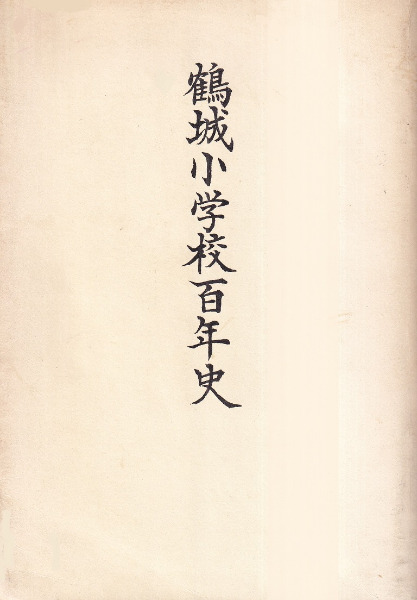 鶴城小学校百年史